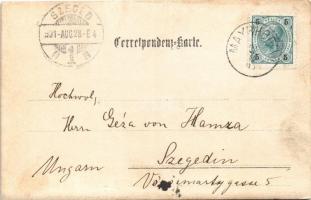 SZEGED
901-AUG28-E4
Correspondenz-Karte.
5 5
Hochwol,
Herrn Géza von Hamza
Szegedin
Ungarn
Vörösmartygasse 5